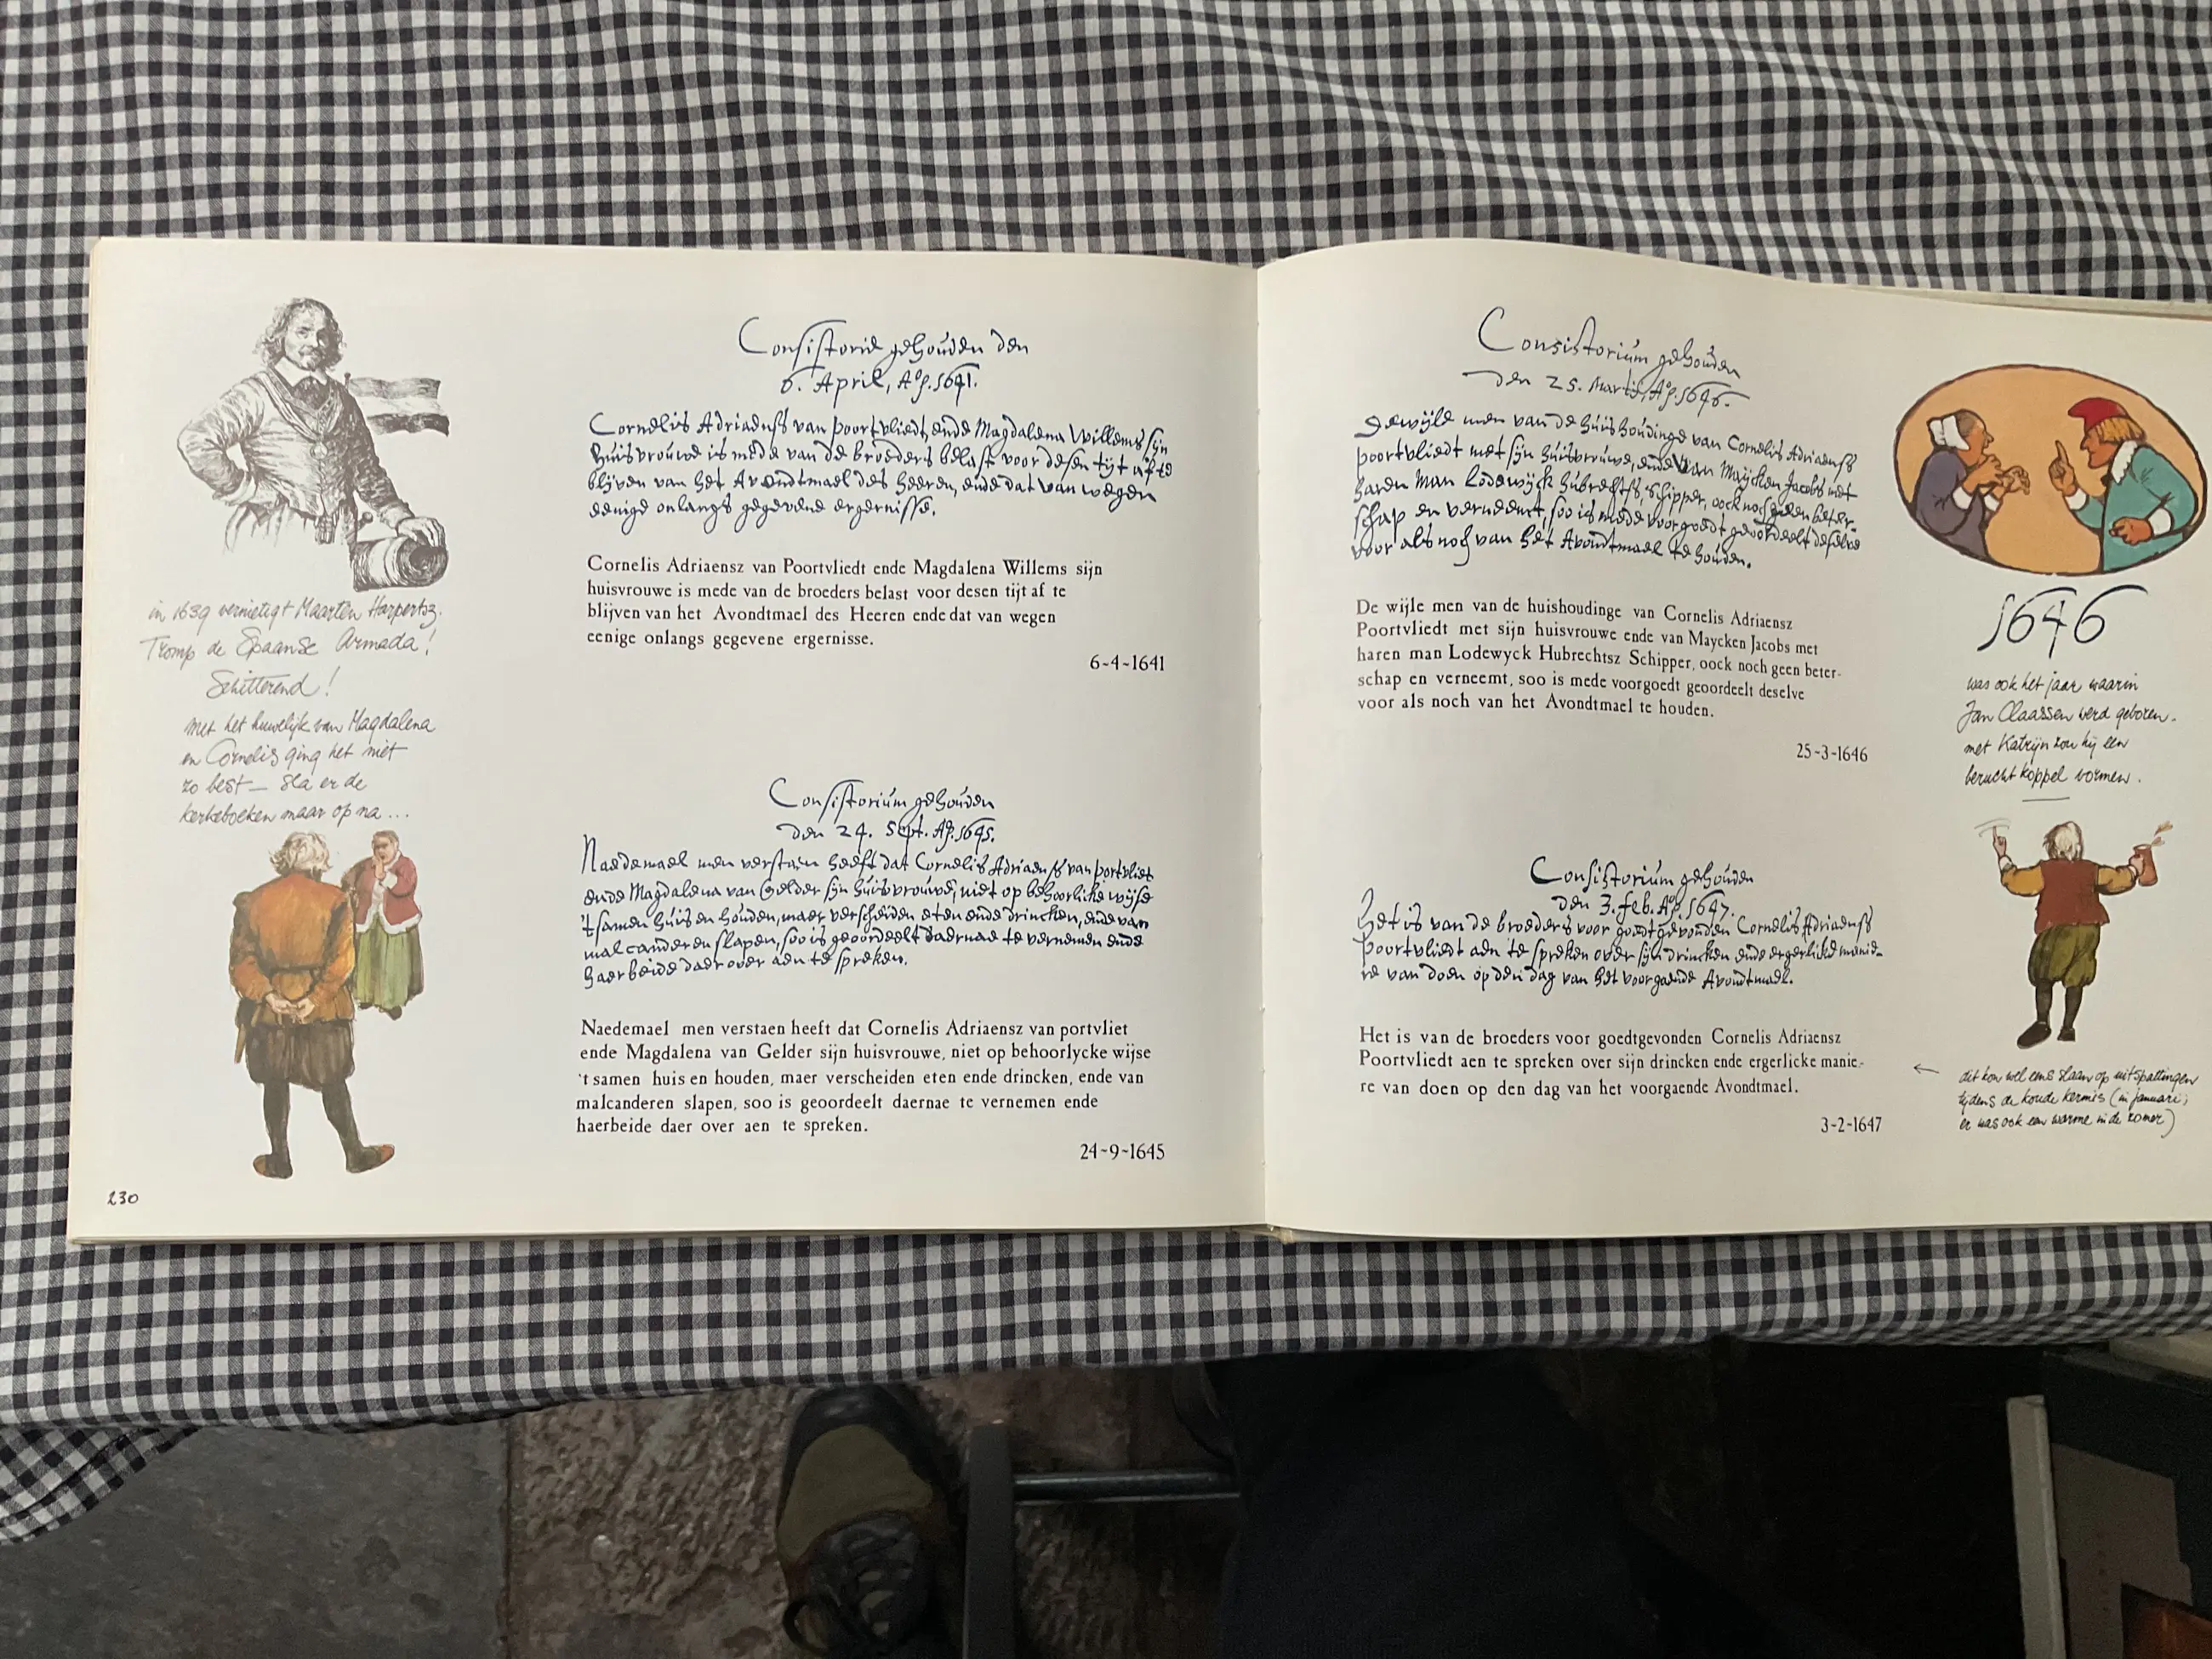 in 1639 vernietigt Maarten Harpertsz.
Tromp de Spaanse Armada!
Schitterend!
met het huwelijk van Magdalena
en Cornelis ging het niet
zo best – sla er de
kerkeboeken maar op na...
230
Consistorie gehouden den
6. April, A°. 1641.
Cornelis Adriaensz van Poortvliedt, ende Magdalena Willems sijn
huisvrouwe is mede van de broeders belast voor desen tijt af te
blijven van het Avondtmael des Heeren, ende dat van wegen
eenige onlangs gegevene ergernisse.
Cornelis Adriaensz van Poortvliedt ende Magdalena Willems sijn
huisvrouwe is mede van de broeders belast voor desen tijt af te
blijven van het Avondtmael des Heeren ende dat van wegen
eenige onlangs gegevene ergernisse.
6-4-1641
Consistorium gehouden
den 24. Sept. A°. 1645.
Naedemael men verstaen heeft dat Cornelis Adriaensz van portvliet
ende Magdalena van Gelder sijn huisvrouwe, niet op behoorlicke wijse
't samen huis en houden, maer verscheiden eten ende drincken, ende van
malcanderen slapen, soo is geoordeelt daernae te vernemen ende
haerbeide daer over aen te spreken.
Naedemael men verstaen heeft dat Cornelis Adriaensz van portvliet
ende Magdalena van Gelder sijn huisvrouwe, niet op behoorlycke wijse
't samen huis en houden, maer verscheiden eten ende drincken, ende van
malcanderen slapen, soo is geoordeelt daernae te vernemen ende
haerbeide daer over aen te spreken.
24-9-1645
Consistorium gehouden
den 25. Martii, A°. 1646.
Dewijle men van de huishoudinge van Cornelis Adriaensz
poortvliedt met sijn huisvrouwe, ende van Maijcken Jacobs met
haren man Lodewijck Hubrechtsz, Schipper, oock noch geen beter-
schap en verneemt, soo is mede voorgoedt geoordeelt deselve
voor als noch van het Avondtmael te houden.
De wijle men van de huishoudinge van Cornelis Adriaensz
Poortvliedt met sijn huisvrouwe ende van Maycken Jacobs met
haren man Lodewyck Hubrechtsz Schipper, oock noch geen beter-
schap en verneemt, soo is mede voorgoedt geoordeelt deselve
voor als noch van het Avondtmael te houden.
25-3-1646
Consistorium gehouden
den 3. feb. A°. 1647.
Het is van de broeders voor goedt gevonden Cornelis Adriaensz
Poortvliedt aen te spreken over sijn drincken ende ergerlicke manie-
re van doen op den dag van het voorgaende Avondtmael.
Het is van de broeders voor goedtgevonden Cornelis Adriaensz
Poortvliedt aen te spreken over sijn drincken ende ergerlicke manie-
re van doen op den dag van het voorgaende Avondtmael.
3-2-1647
1646
was ook het jaar waarin
Jan Claassen werd geboren.
met Katrijn zou hij een
berucht koppel vormen.
← dit kon wel eens slaan op uitspattingen
tijdens de koude kermis (in januari;
er was ook een warme in de zomer)